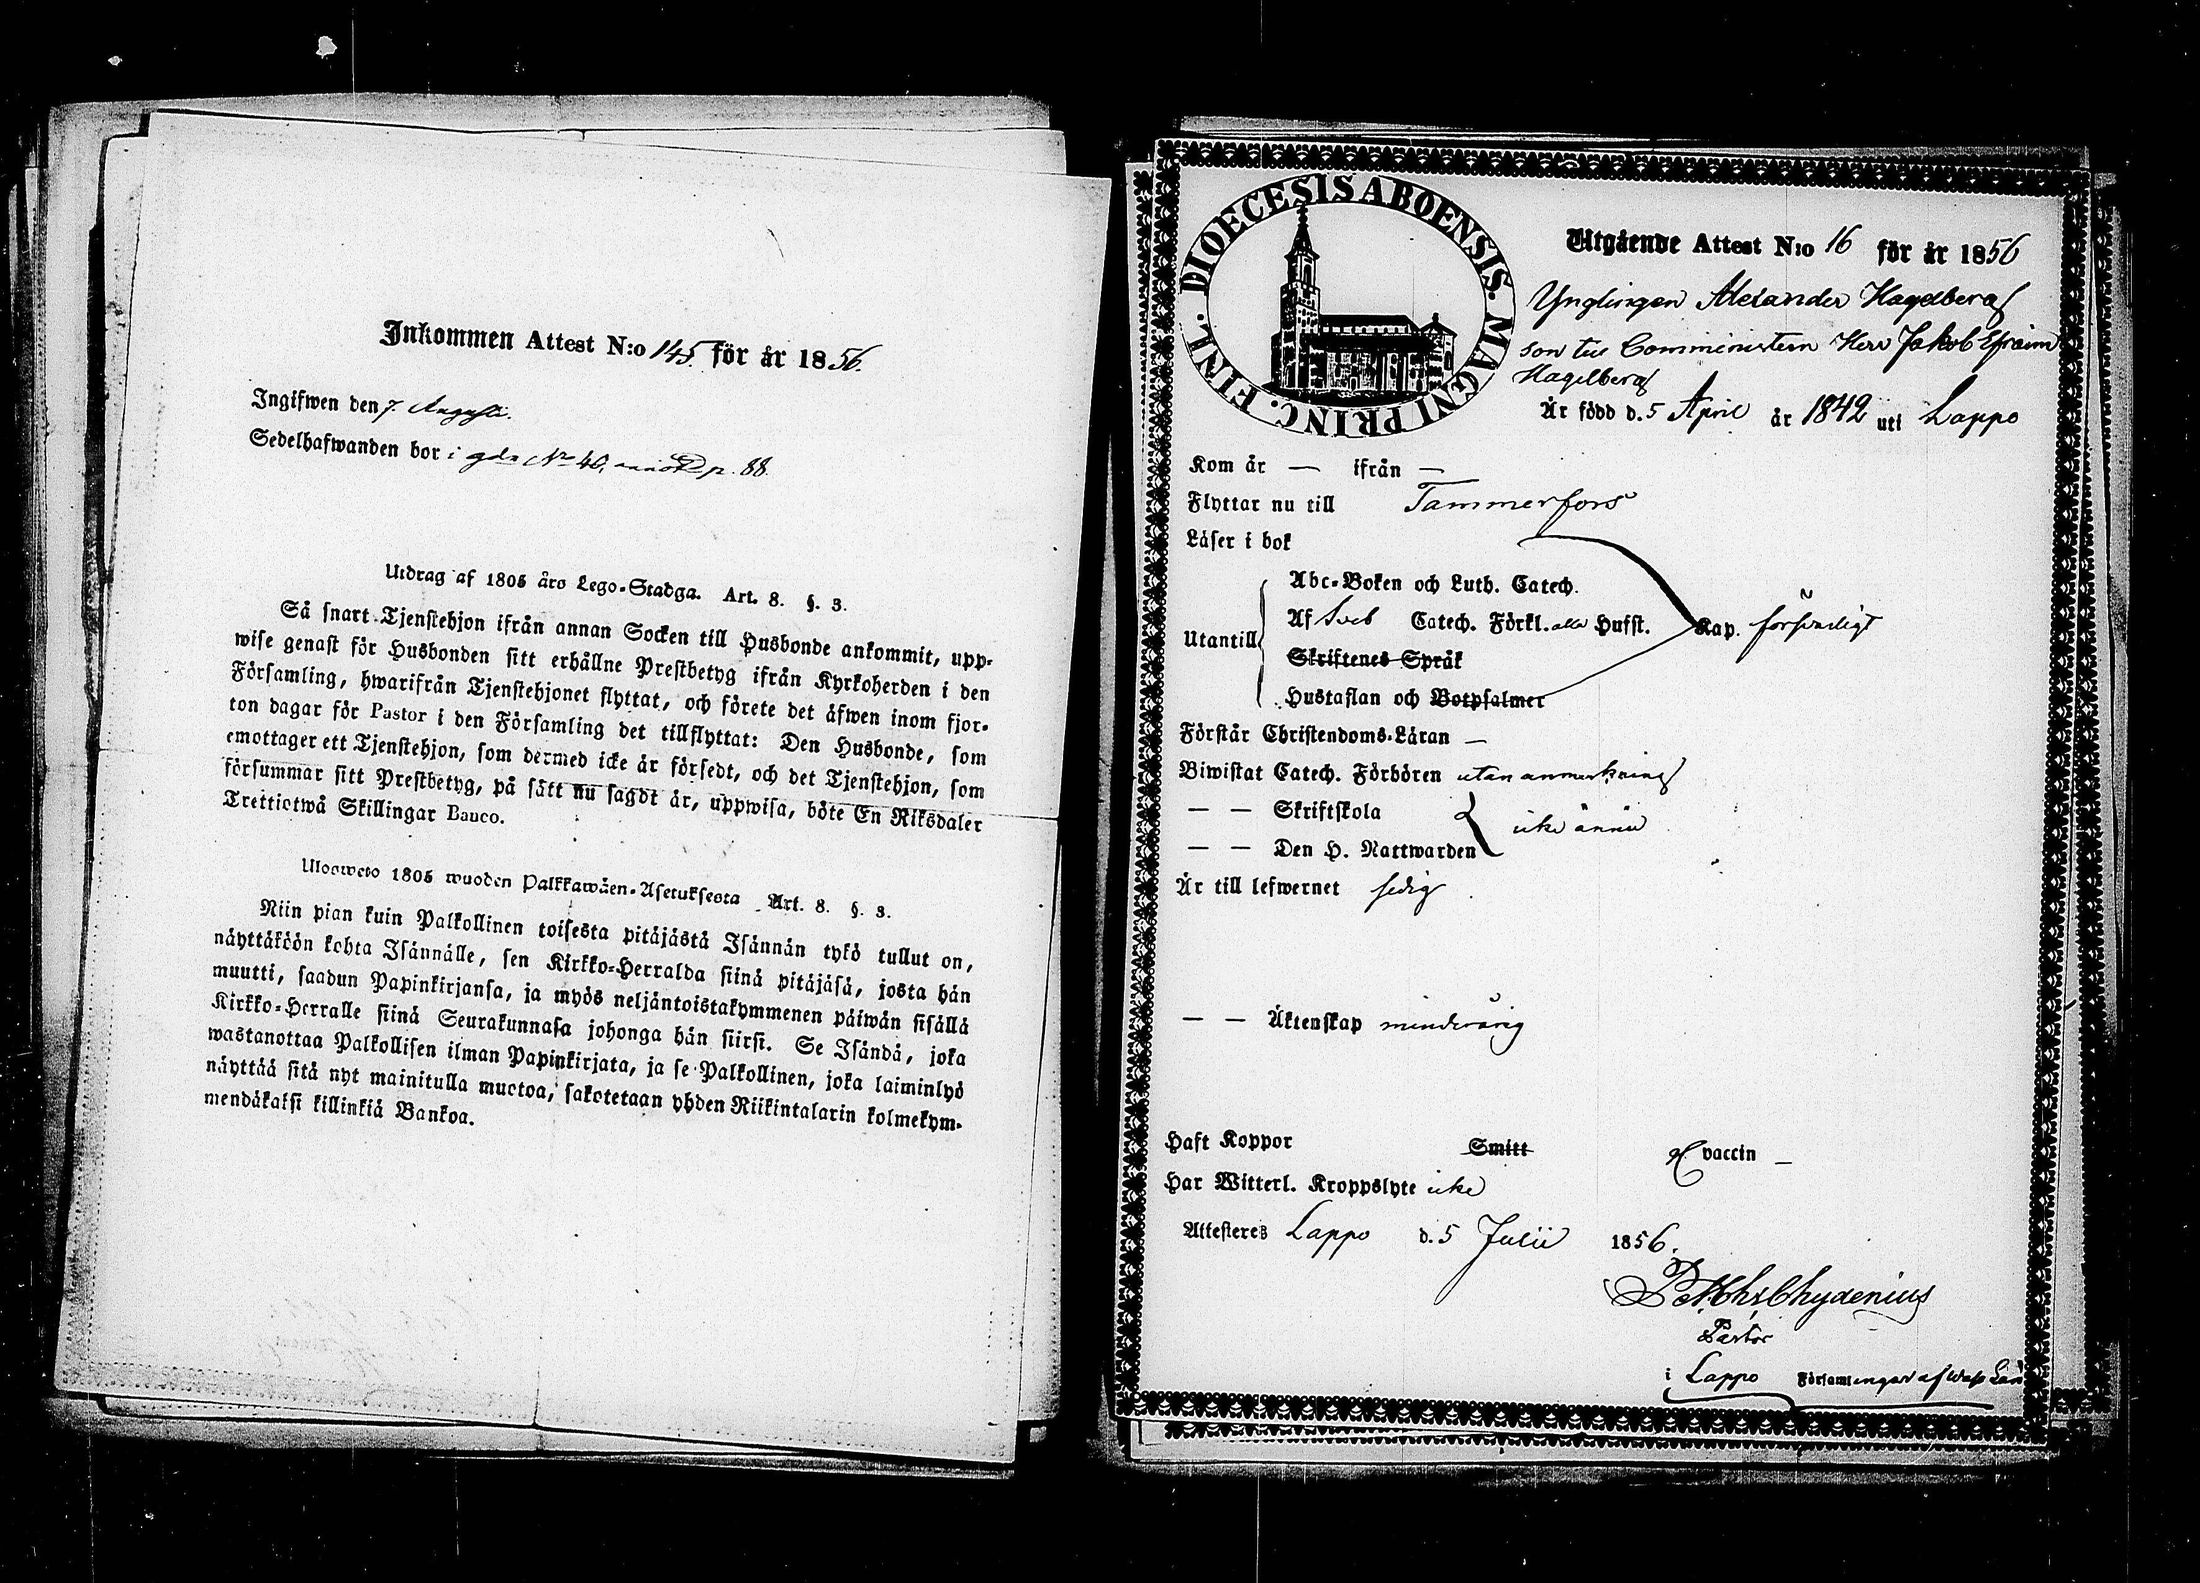 Inkommen Attest N:o 145. för år 1856.
Ingifwen den 7. Augusti.
Sedelhafwanden bor i gdn No 40, p. 88.
Utdrag af 1805 års Lego-Stadga. Art. 8. §. 3.
Så snart Tjenstehjon ifrån annan Socken till Husbonde ankommit, upp-
wise genast för Husbonden sitt erhållne Prestbetyg ifrån Kyrkoherden i den
Församling, hwarifrån Tjenstehjonet flyttat, och förete det äfwen inom fjor-
ton dagar för Pastor i den Församling det tillflyttat: Den Husbonde, som
emottager ett Tjenstehjon, som dermed icke är försedt, och det Tjenstehjon, som
försummar sitt Prestbetyg, på sätt nu sagdt är, uppwisa, böte En Riksdaler
Trettiotwå Skillingar Banco.
Ulosweto 1805 wuoden Palkkawäen-Asetuksesta Art. 8. §. 3.
Niin pian kuin Palkollinen toisesta pitäjästä Isännän tykö tullut on,
näyttäköön kohta Isännälle, sen Kirkko-Herralda siinä pitäjäsä, josta hän
muutti, saadun Papinkirjansa, ja myös neljäntoistakymmenen päiwän sisällä
Kirkko-Herralle siinä Seurakunnasa johonga hän siirsi. Se Isändä, joka
wastanottaa Palkollisen ilman Papinkirjata, ja se Palkollinen, joka laiminlyö
näyttää sitä nyt mainitulla muotoa, sakotetaan yhden Riikintalarin kolmekym-
mendäkaksi killinkiä Bankoa.
DIOECESIS ABOENSIS. MAGNI PRINC. FINL.
Utgående Attest N:o 16 för år 1856
Ynglingen Alexander Hagelberg
son till Comministern Herr Jakob Efraim
Hagelberg
Är född d. 5 April år 1842 uti Lappo
Kom år — ifrån —
Flyttar nu till Tammerfors
Läser i bok
Abc-Boken och Luth. Catech.
Utantill Af Sveb Catech. Förkl. alla Husst. Kap. försvarligt
Skriftenes Språk
Hustaflan och Botpsalmer
Förstår Christendoms-Läran —
Biwistat Catech. Förhören utan anmärkning
— — Skriftskola
icke ännu
— — Den H. Nattwarden
Är till lefwernet sedig
— — Äktenskap minderårig
Haft Koppor Smitt af vaccin —
Har Witterl. Kroppslyte icke
Attesteres Lappo d. 5 Julii 1856.
Chydenius
Pastor
i Lappo Församlingar af Wasa Län